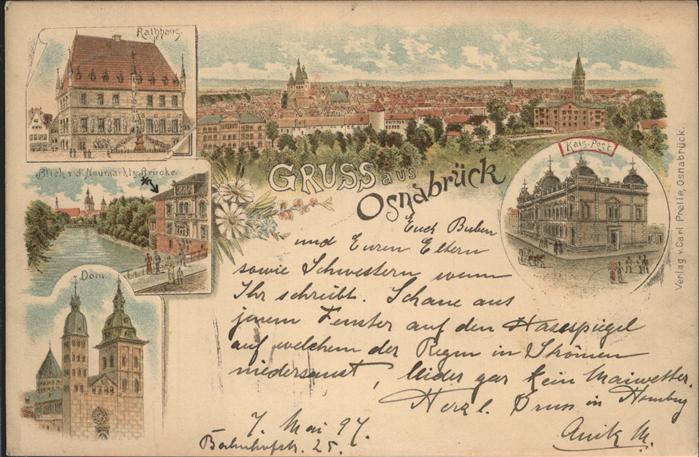 Rathhaus.
Blick v. d. Neumarkts-Brücke.
Dom.
GRUSS aus
Osnabrück
Kais. Post.
Verlag v. Carl Prelle, Osnabrück.
Euch Buben
und Euren Eltern
sowie Schwestern wenn
Ihr schreibt. Schaue aus
jenem Fenster auf den Hasespiegel
auf welchem der Regen in Strömen
niedersaust, leider gar kein Maiwetter.
Herzl. Gruss in Hamburg
7. Mai 97.
Bahnhofstr. 25.
M.